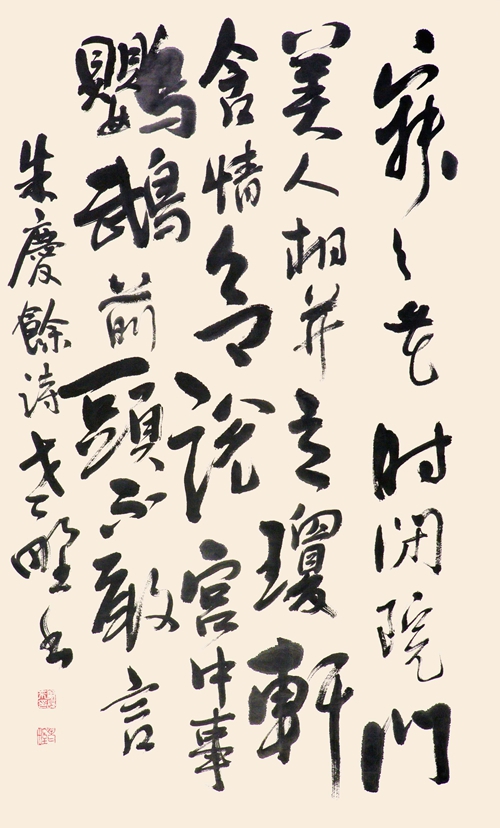 寂〻花时闭院门
美人相并立瓊軒
含情欲说宫中事
鸚鵡前頭不敢言
朱慶餘诗书